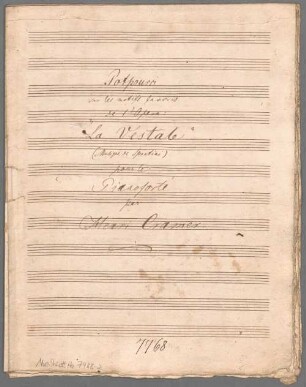 Potpourri
sur les motifs favoris
de l'Opera
"La Vestale"
(Musique de Spontini)
pour le
Pianoforte
par
Henri Cramer
7768